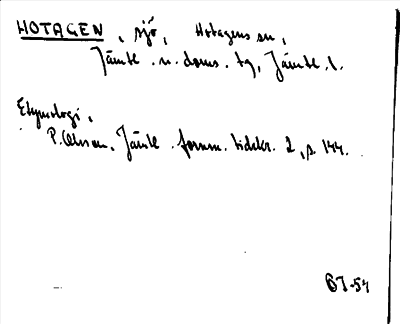 HOTAGEN, sjö, Hotagens sn,
Jämtl. n. doms. tg, Jämtl. l.
Etymologi,
P. Olsson, Jämtl. fornm. tidskr. 2, s. 144.
BJ-54